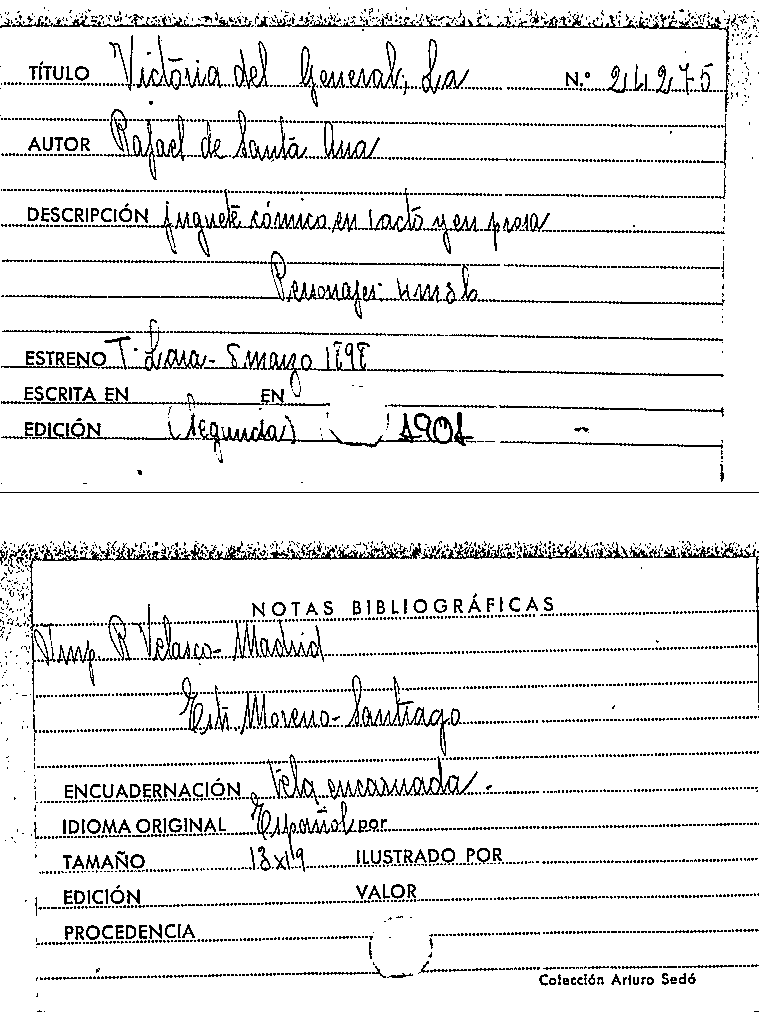 TÍTULO Victoria del General, La N.º 24275
AUTOR Rafael de Santa Ana
DESCRIPCIÓN juguete cómico en 1 acto y en prosa
Personajes: 4m3h
ESTRENO T. Lara - 8 marzo 1898
ESCRITA EN EN
EDICIÓN (Segunda) 1901 -
NOTAS BIBLIOGRÁFICAS
Imp. R Velasco - Madrid
Estr. Moreno - Santiago
ENCUADERNACIÓN Tela encarnada.
IDIOMA ORIGINAL Español por
TAMAÑO 13x19 ILUSTRADO POR
EDICIÓN VALOR
PROCEDENCIA
Colección Arturo Sedó